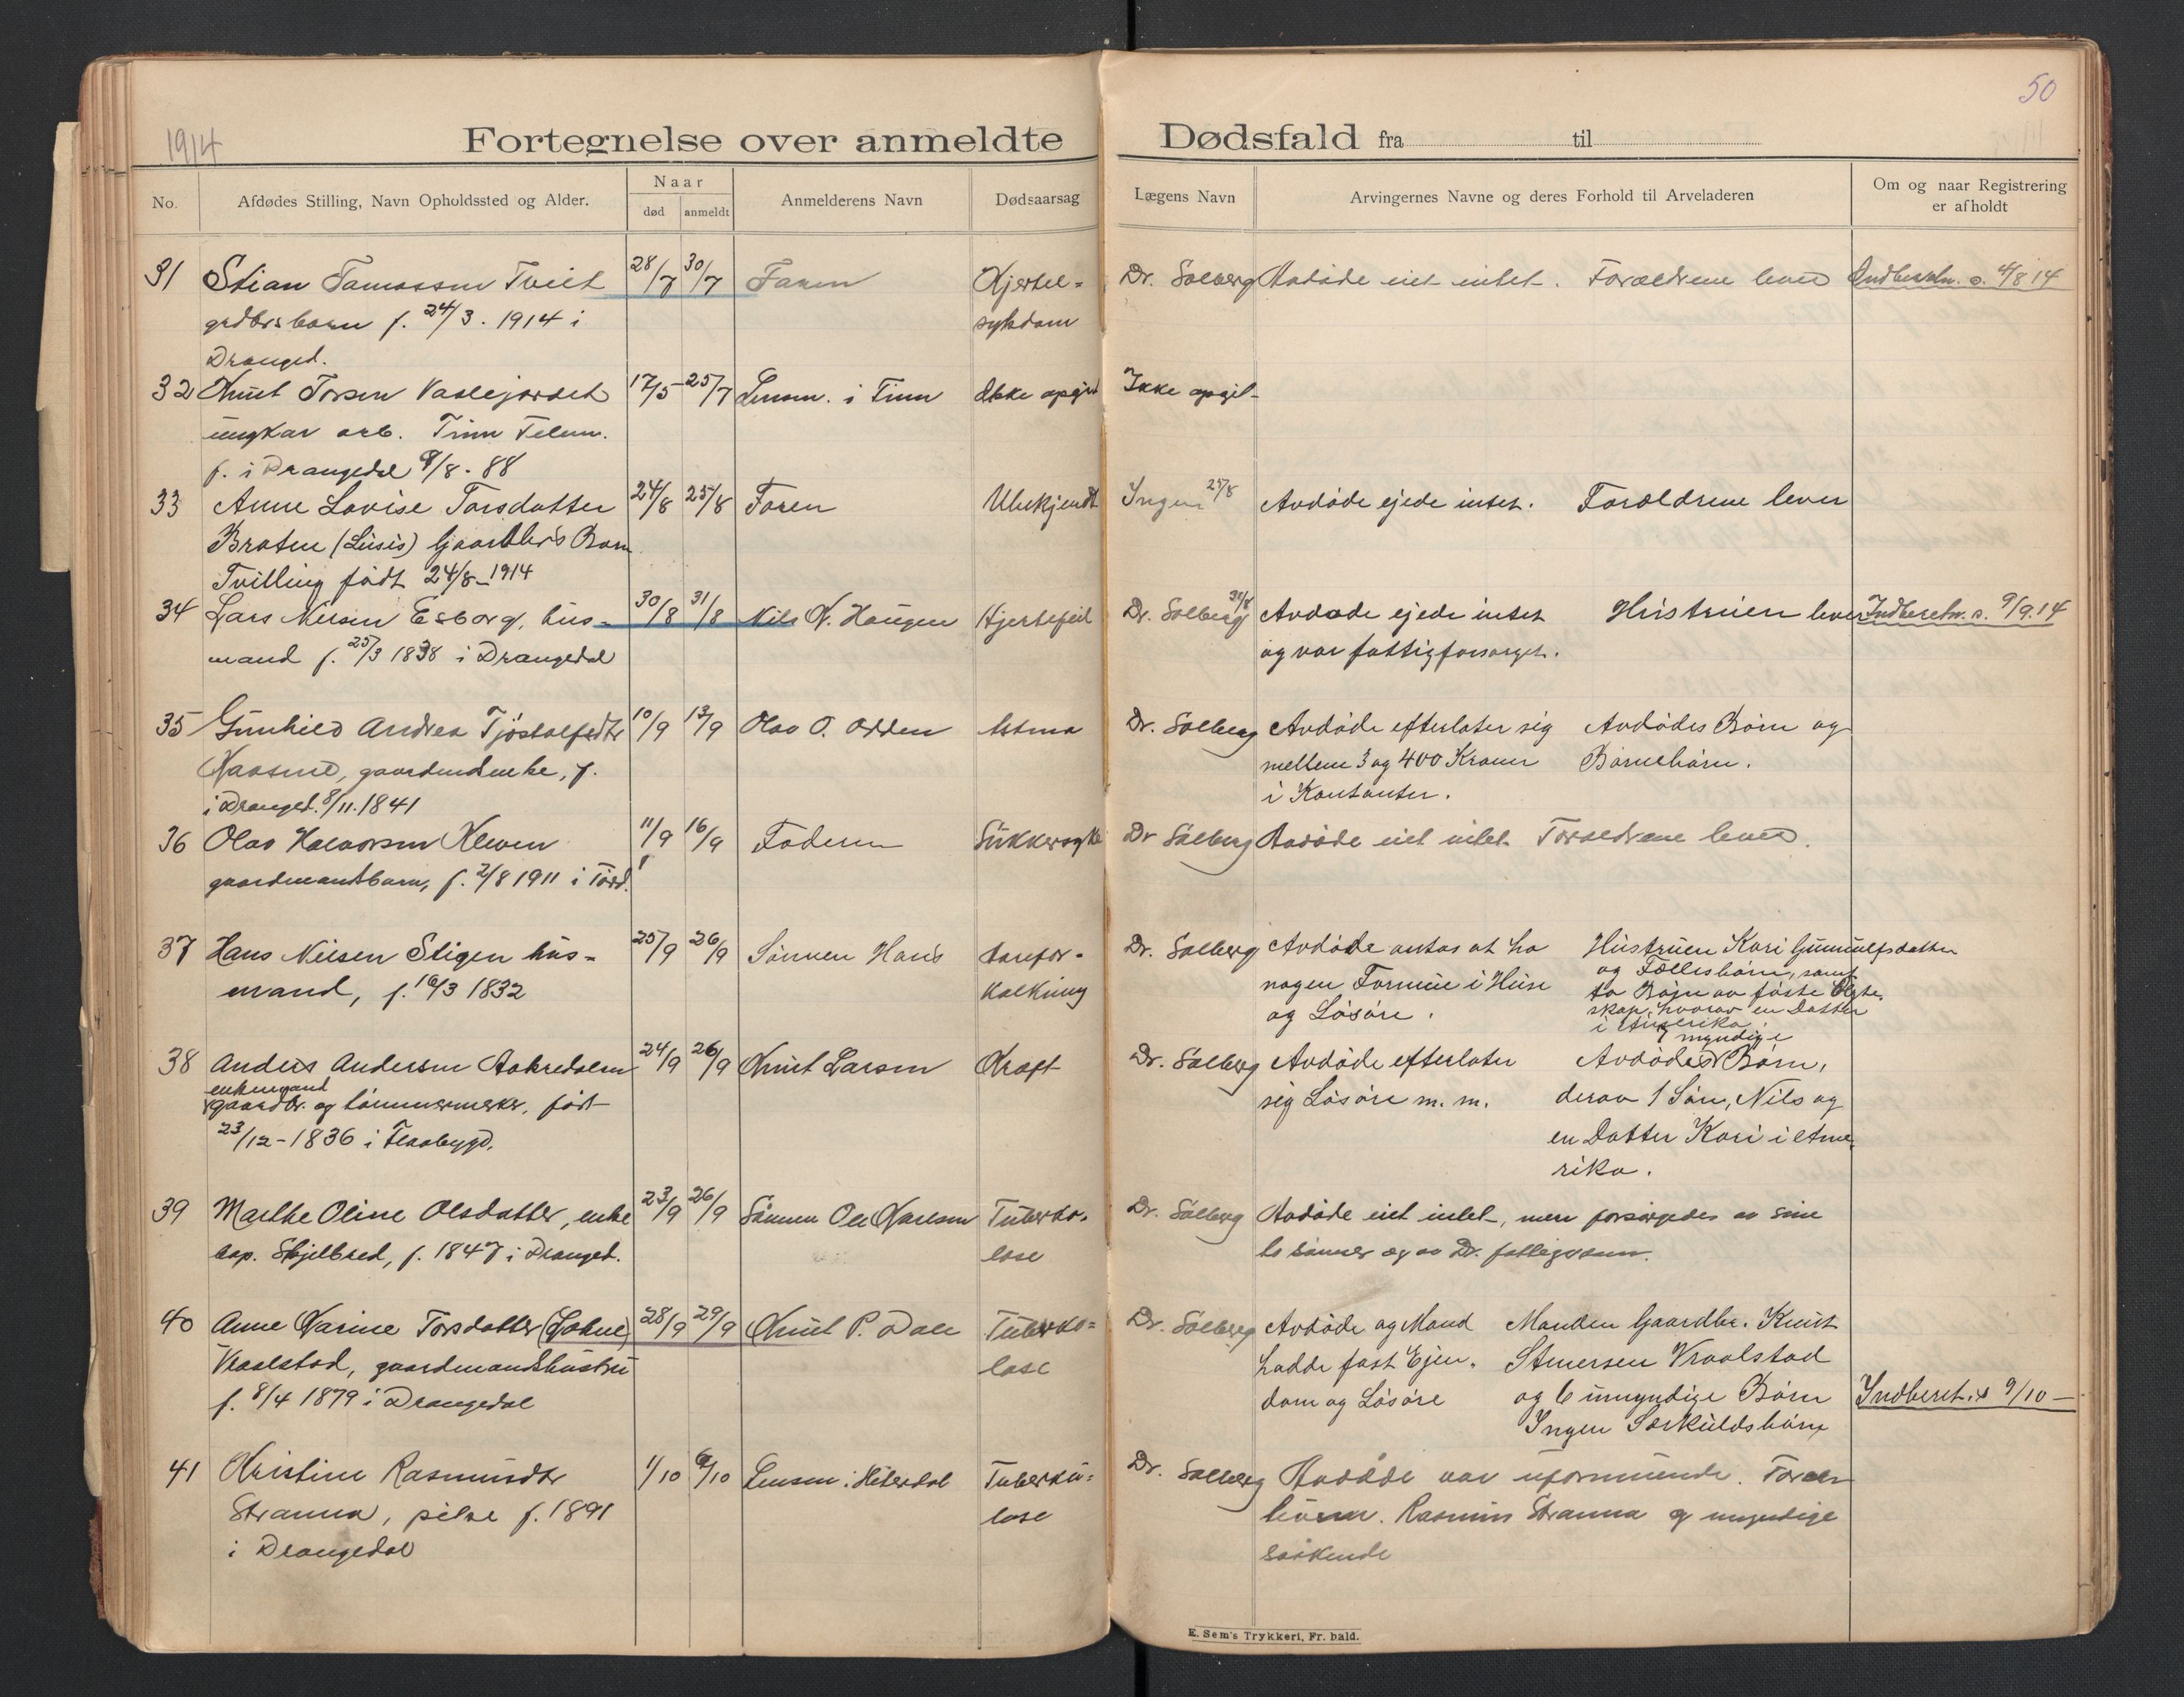 1914
50
Fortegnelse over anmeldte Dødsfald fra til
No.
Afdødes Stilling, Navn Opholdssted og Alder.
Naar
død
anmeldt
Anmelderens Navn
Dødsaarsag
Lægens Navn
Arvingernes Navne og deres Forhold til Arveladeren
Om og naar Registrering
er afholdt
31 Stian Tamassen Tveit 28/7 30/7 Faren Kjertel= Dr. Solberg Avdøde eiet intet. Forældrene lever 4/8 14
grdbrs barn f. 24/3. 1914 i sykdom
Dranged.
32 Knut Torsen Vaslejordet 17/5 25/7 Lensm. i Tinn Ikke opgit Ikke opgit
ungkar arb. Tinn Telem.
f. i Drangedal 9/8 - 88
33 Anne Lovise Torsdatter 24/8 25/8 Faren Ubekjendt Ingen 25/8 Avdøde ejede intet. Forældrene lever
Braten (Lusis) Gaardbr's Barn
Tvilling født 24/8 - 1914
34 Lars Nilsen Esborg, hus- 30/8 31/8 Nils N. Haugen Hjertefeil Dr. Solberg 31/8 Avdøde ejede intet Hustruen lever Indberetn. s. 9/9.14
mand f. 25/3 1838 i Drangedal og var fattigforsørget.
35 Gunhild Andrea Tjøstolfsdtr 10/9 12/9 Olav O. Odden Astma Dr. Solberg Avdøde efterlater sig Avdødes Børn og
gaardmdsenke, f. mellem 3 og 400 Kroner Børnebørn.
i Dranged. 8/11. 1841 i Kontanter.
36 Olav Halvorsen Kleven 11/9 16/9 Faderen Sukkersyke Dr Solberg Avdøde eiet intet. Forældrene lever.
gaardmandsbarn, f. 2/8 1911 i Tørd.
37 Hans Nilsen Stigen hus- 25/9 26/9 Sønnen Hans Aarefor- Dr. Solberg Avdøde antas at ha Hustruen Kari Gunnulfsdatter
mand, f. 16/3 1832 kalkning nogen Formue i Huse og Fællesbørn, samt
og Løsøre. to Børn av første Ægte-
skap, hvorav en Datter
i Amerika.
7 myndige
38 Anders Andersen Aakredalen 24/9 26/9 Knut Larsen Kræft Dr. Solberg Avdøde efterlater Avdødes Børn,
enkemand
gaardbr. og tømmermerker, født sig Løsøre m. m. derav 1 Søn, Nils og
23/12 - 1836 i Flaabygd. en Datter Kari i Ame-
rika.
39 Marthe Oline Olsdatter, enke 23/9 26/9 Sønnen Ole Karlsen Tuberko- Dr. Solberg Avdøde eiet intet, men forsørgedes av sine
opp. Skjelbred, f. 1847 i Dranged. lose to sønner og av Dr. fattigvæsen.
40 Anne Karine Torsdatter 28/9 29/9 Knut P. Dale Tuberko= Dr. Solberg Avdøde og Mand Manden Gaardbr. Knut
Vraalstad, gaardmandshustru lose hadde fast Ejen- Vraalstad
f. 8/4 1879 i Drangedal dom og Løsøre og 6 umyndige Børn Indberet. s 9/10 —
Ingen Særkuldsbørn
41 Kristine Rasmusdtr 1/10 6/10 Lensm. i Hiterdal Tuberku= Dr. Solberg Avdøde var uformuende.
Stranna, pike f. 1891 lose Rasmus Stranna og umyndige
i Drangedal søskende
E. Sem's Trykkeri, Fr. hald.